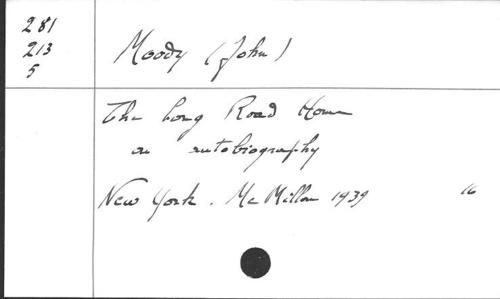 281
213
5
Moody (John)
The Long Road Home
an autobiography
New York. McMillan 1939 16